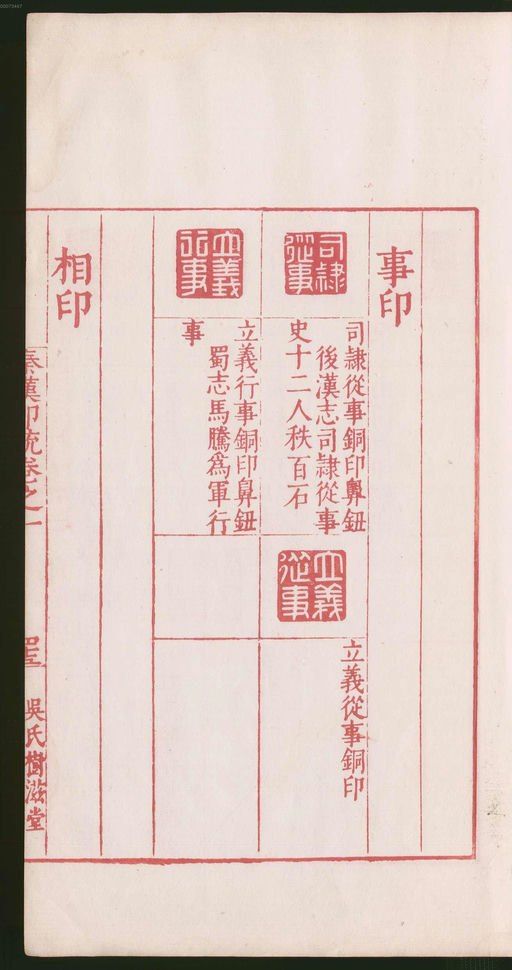 00073447
事印
司隸從事
司隸從事銅印鼻鈕
後漢志司隸從事
史十二人秩百石
立義行事
立義行事銅印鼻鈕
蜀志馬騰爲軍行
事
立義從事
立義從事銅印
相印
秦漢印統卷之一
吳氏樹滋堂